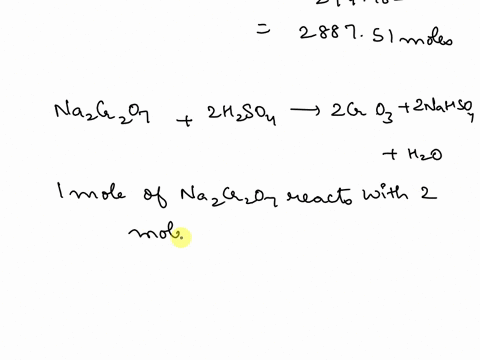 = 2887.51 moles
Na2Cr2O7 + 2H2SO4 → 2CrO3 + 2NaHSO4
+ H2O
1 mole of Na2Cr2O7 reacts with 2
mol.